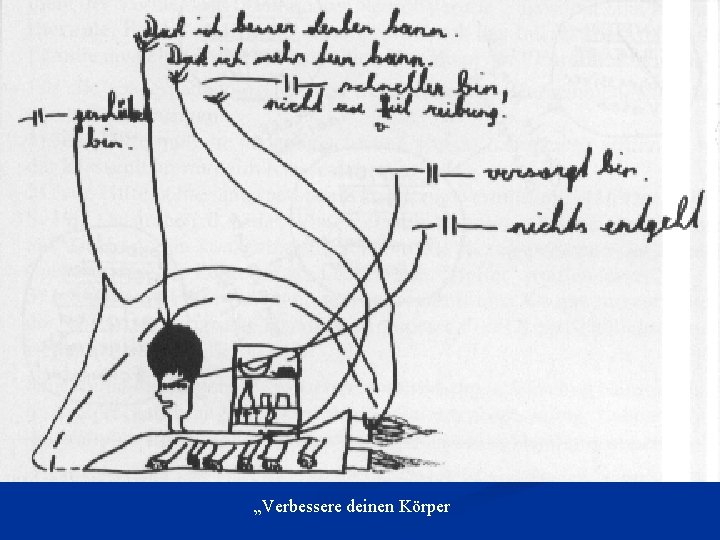 Daß ich besser denken kann.
Daß ich mehr tun kann.
—||— schneller bin,
nicht zu viel reibung!
—||— geschützt
bin.
—||— versorgt bin.
—||— nichts entgeht
„Verbessere deinen Körper